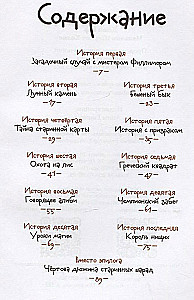 Содержание
История первая
Загадочный случай с мистером Филлимором
—7—
История вторая
Лунный камень
—17—
История третья
Бешеный бык
—23—
История четвёртая
Тайна старинной карты
—29—
История пятая
История с призраком
—35—
История шестая
Охота на лис
—41—
История седьмая
Греческий квадрат
—47—
История восьмая
Говорящие алиби
—55—
История девятая
Чемпионский забег
—61—
История десятая
Уроки магии
—69—
История последняя
Король нищих
—75—
Вместо эпилога
Чёртова дюжина старинных шарад
—89—